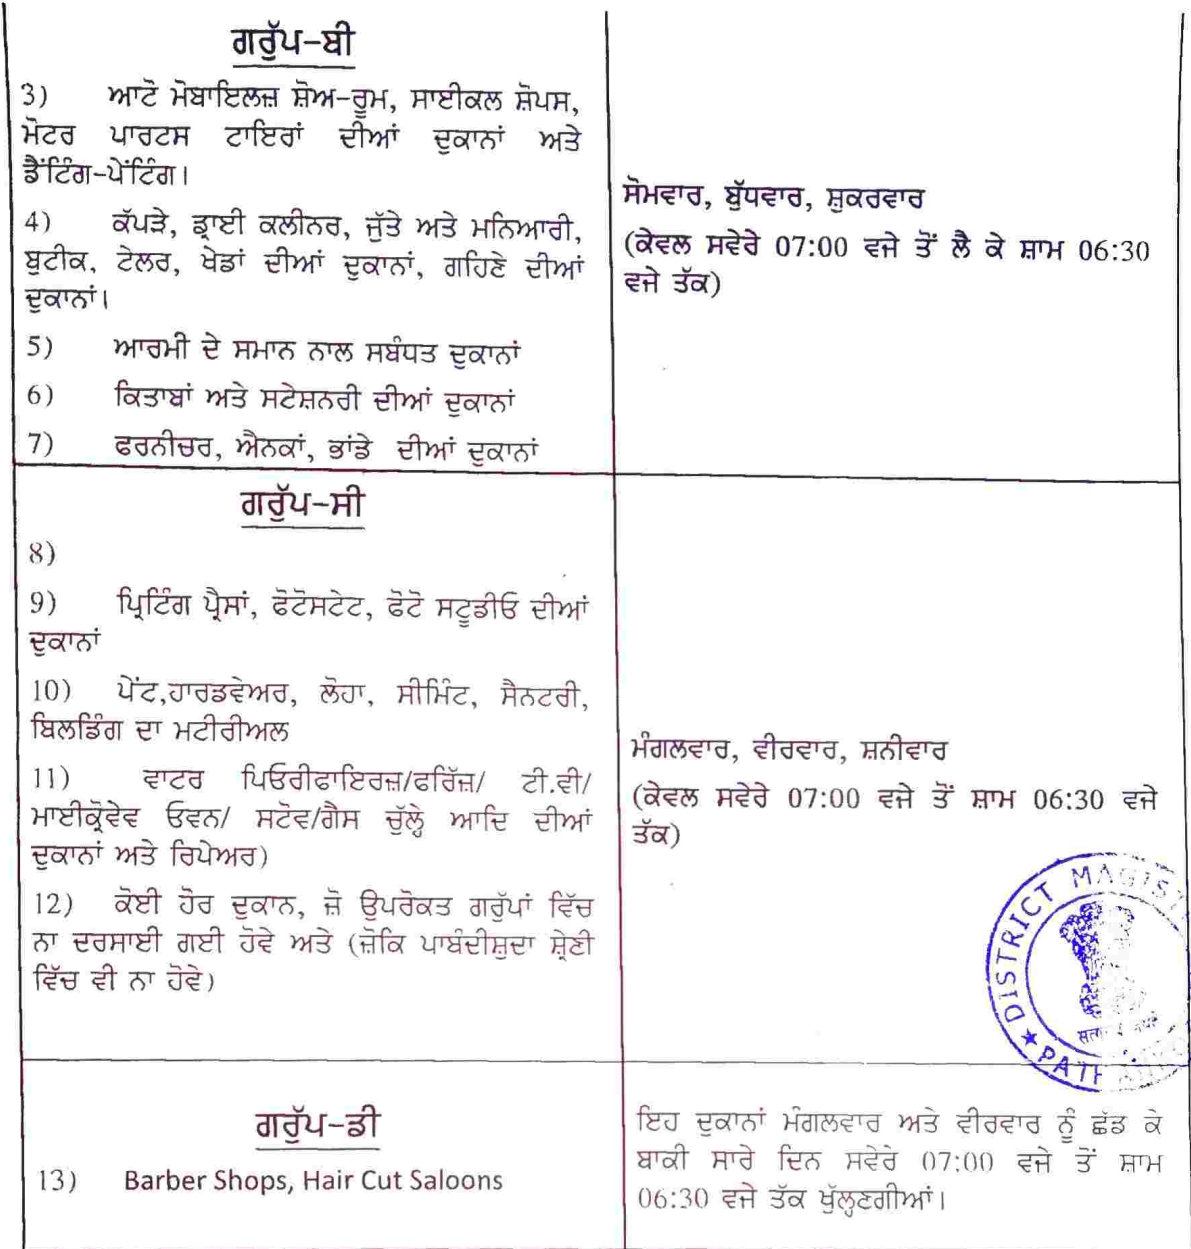 ਗਰੁੱਪ-ਬੀ
3) ਆਟੋ ਮੋਬਾਇਲਜ਼ ਸ਼ੋਅ-ਰੂਮ, ਸਾਈਕਲ ਸ਼ੋਪਸ,
ਮੋਟਰ ਪਾਰਟਸ ਟਾਇਰਾਂ ਦੀਆਂ ਦੁਕਾਨਾਂ ਅਤੇ
ਡੈਂਟਿੰਗ-ਪੇਂਟਿੰਗ।
4) ਕੱਪੜੇ, ਡ੍ਰਾਈ ਕਲੀਨਰ, ਜੁੱਤੇ ਅਤੇ ਮਨਿਆਰੀ,
ਬੁਟੀਕ, ਟੇਲਰ, ਖੇਡਾਂ ਦੀਆਂ ਦੁਕਾਨਾਂ, ਗਹਿਣੇ ਦੀਆਂ
ਦੁਕਾਨਾਂ।
5) ਆਰਮੀ ਦੇ ਸਮਾਨ ਨਾਲ ਸਬੰਧਤ ਦੁਕਾਨਾਂ
6) ਕਿਤਾਬਾਂ ਅਤੇ ਸਟੇਸ਼ਨਰੀ ਦੀਆਂ ਦੁਕਾਨਾਂ
7) ਫਰਨੀਚਰ, ਐਨਕਾਂ, ਭਾਂਡੇ ਦੀਆਂ ਦੁਕਾਨਾਂ
ਸੋਮਵਾਰ, ਬੁੱਧਵਾਰ, ਸ਼ੁਕਰਵਾਰ
(ਕੇਵਲ ਸਵੇਰੇ 07:00 ਵਜੇ ਤੋਂ ਲੈ ਕੇ ਸ਼ਾਮ 06:30
ਵਜੇ ਤੱਕ)
ਗਰੁੱਪ-ਸੀ
8)
9) ਪ੍ਰਿਟਿੰਗ ਪ੍ਰੈਸਾਂ, ਫੋਟੋਸਟੇਟ, ਫੋਟੋ ਸਟੂਡੀਓ ਦੀਆਂ
ਦੁਕਾਨਾਂ
10) ਪੇਂਟ,ਹਾਰਡਵੇਅਰ, ਲੋਹਾ, ਸੀਮਿੰਟ, ਸੈਨਟਰੀ,
ਬਿਲਡਿੰਗ ਦਾ ਮਟੀਰੀਅਲ
11) ਵਾਟਰ ਪਿਓਰੀਫਾਇਰਜ਼/ਫਰਿੱਜ਼/ ਟੀ.ਵੀ/
ਮਾਈਕ੍ਰੋਵੇਵ ਓਵਨ/ ਸਟੋਵ/ਗੈਸ ਚੁੱਲ੍ਹੇ ਆਦਿ ਦੀਆਂ
ਦੁਕਾਨਾਂ ਅਤੇ ਰਿਪੇਅਰ)
12) ਕੋਈ ਹੋਰ ਦੁਕਾਨ, ਜ਼ੋ ਉਪਰੋਕਤ ਗਰੁੱਪਾਂ ਵਿੱਚ
ਨਾ ਦਰਸਾਈ ਗਈ ਹੋਵੇ ਅਤੇ (ਜ਼ੋਕਿ ਪਾਬੰਦੀਸ਼ੁਦਾ ਸ਼੍ਰੇਣੀ
ਵਿੱਚ ਵੀ ਨਾ ਹੋਵੇ)
ਮੰਗਲਵਾਰ, ਵੀਰਵਾਰ, ਸ਼ਨੀਵਾਰ
(ਕੇਵਲ ਸਵੇਰੇ 07:00 ਵਜੇ ਤੋਂ ਸ਼ਾਮ 06:30 ਵਜੇ
ਤੱਕ)
DISTRICT
ਗਰੁੱਪ-ਡੀ
13) Barber Shops, Hair Cut Saloons
ਇਹ ਦੁਕਾਨਾਂ ਮੰਗਲਵਾਰ ਅਤੇ ਵੀਰਵਾਰ ਨੂੰ ਛੱਡ ਕੇ
ਬਾਕੀ ਸਾਰੇ ਦਿਨ ਸਵੇਰੇ 07:00 ਵਜੇ ਤੋਂ ਸ਼ਾਮ
06:30 ਵਜੇ ਤੱਕ ਖੁੱਲ੍ਹਣਗੀਆਂ।